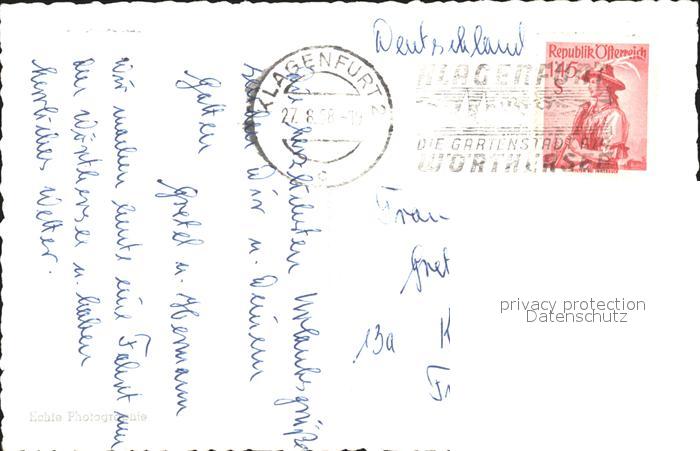 Deutschland
Republik Österreich
1'45
S
KLAGENFURT 2
27. 8. 58 - 19
KLAGENFURT
DIE GARTENSTADT AM
WÖRTHERSEE
Die herzlichsten Urlaubsgrüße
senden Wir u. Deinem
Gatten
Gretel u. Hermann
Wir machen heute eine Fahrt an
den Wörthersee u. haben
herrliches Wetter.
Frau
Gret
13a K
Fr
privacy protection
Datenschutz
Echte Photographie